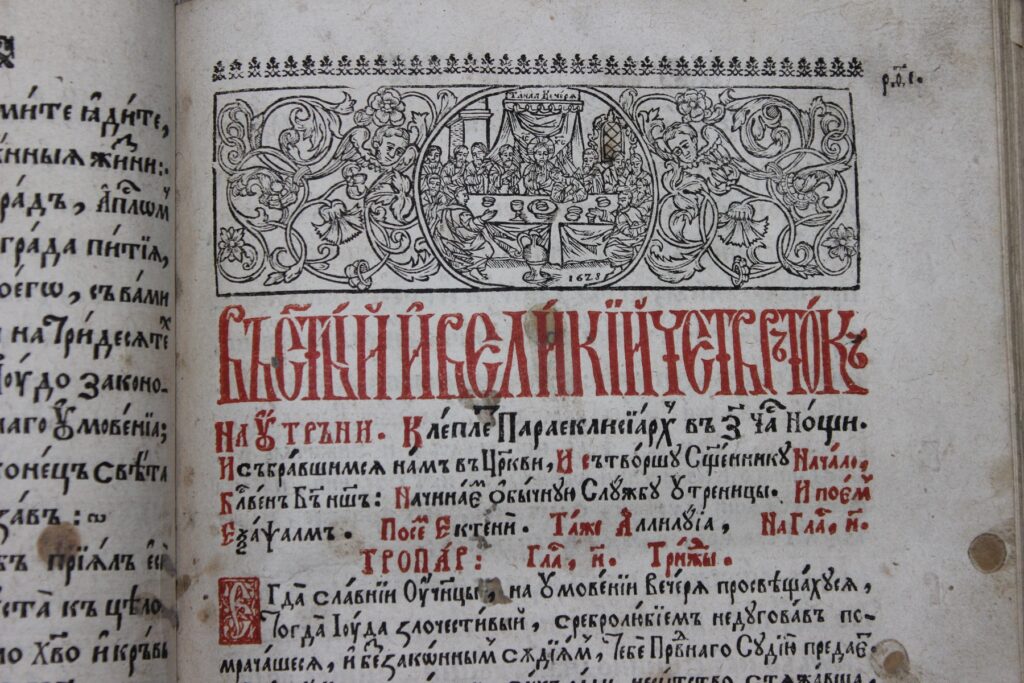 мите ꙗдите,
винныѧ жини:
радъ, Ап͠лѡм
града питїѧ,
оегѡ, съ вами
и на Тридесѧте
Іоудо законо-
наго ᲂумовенїа;
конецъ свѣта
завъ:
бъ прїѧлъ есѝ
уста къ цѣло
мо Хв͠о и кръвь
р҃.ѳ҃.і҃.
Тайнаѧ Вечерѧ
1628
Въ ст҃ый и великїй четвертокъ
На ᲂутръни. Клеплет Параекклисїархъ въ з҃ час нощи.
И събравшимсѧ нам въ Цр҃кви, И сътворшу Сщ҃еннику Начало,
Бл҃вен Бг҃ъ нш҃ъ: Начинает обычную Службу утреницы. И поем
Еѯаѱалмъ. Посем Ектенїи. Таже Аллилуїа, На Глас, и҃.
ТРОПАР: Глас, и҃. Трижды.
Егда славнїи Оуч҃ницы, на умовенїи Вечерѧ просвѣщахусѧ,
Тогда Іоуда злочестивый, сребролюбїем недуговавъ по-
мрачашесѧ, и беззаконным сѫдїѧм, Тебе Правнаго Судїю предает.
стѧжавша,